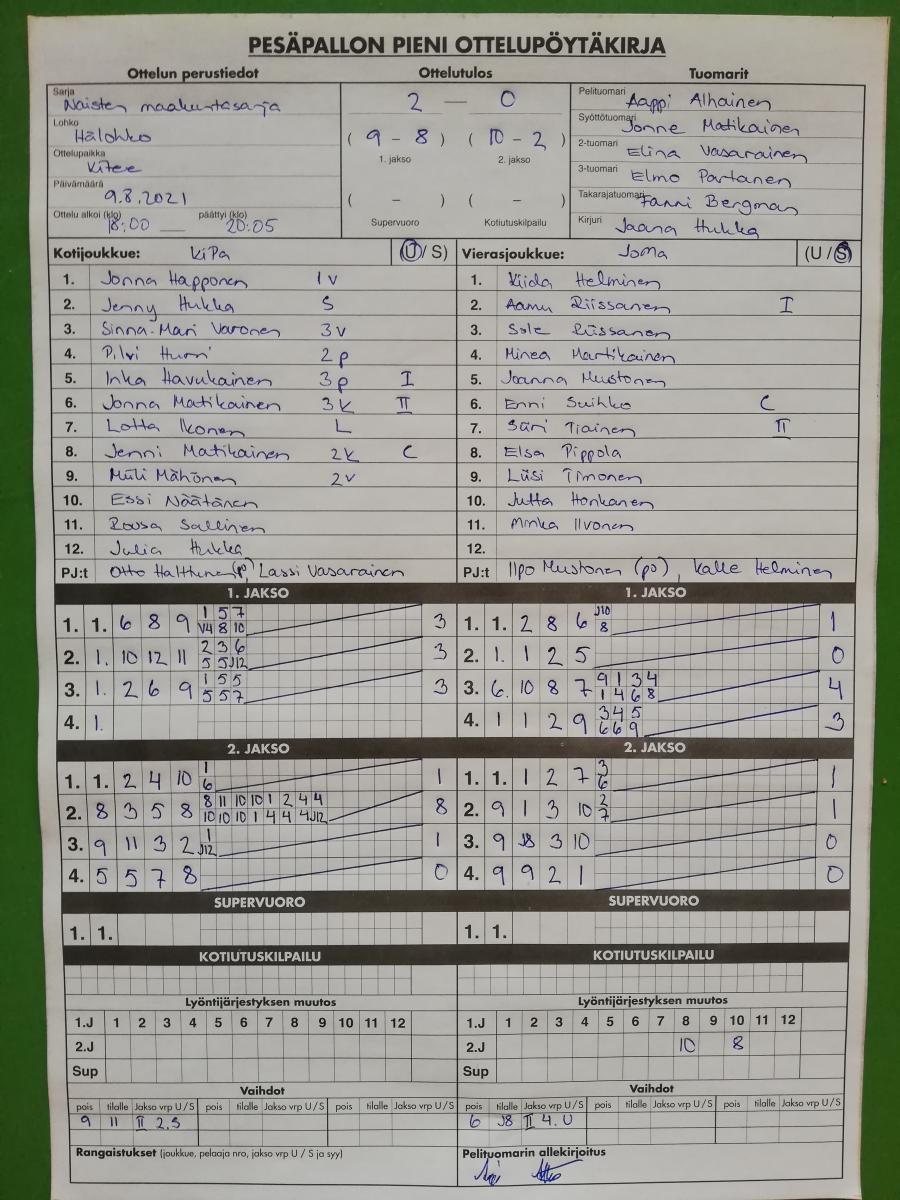 PESÄPALLON PIENI OTTELUPÖYTÄKIRJA
Ottelun perustiedot Ottelutulos Tuomarit
Sarja Naisten maakuntasarja
Lohko Hälohko
Ottelupaikka Kitee
Päivämäärä 9.8.2021
Ottelu alkoi (klo) 18:00 päättyi (klo) 20:05
2 — 0
( 9 - 8 ) ( 10 - 2 )
1. jakso 2. jakso
( - ) ( - )
Supervuoro Kotiutuskilpailu
Pelituomari Aappi Alhainen
Syöttötuomari Jonne Matikainen
2-tuomari Elina Vasarainen
3-tuomari Elmo Partanen
Takarajatuomari Fanni Bergman
Kirjuri Jaana Hukka
Kotijoukkue: KiPa (U / S)
1. Jonna Happonen 1v
2. Jenny Hukka S
3. Sinna-Mari Varonen 3v
4. Pilvi Hurri 2p
5. Inka Havukainen 3p I
6. Jonna Matikainen 3k II
7. Lotta Ikonen L
8. Jenni Matikainen 2k C
9. Miili Mähönen 2v
10. Essi Näätänen
11. Roosa Sallinen
12. Julia Hukka
PJ:t Otto (p), Lassi Vasarainen
Vierasjoukkue: JoMa (U / S)
1. Kiida Helminen
2. Aamu Riissanen I
3. Sole Riissanen
4. Minea Martikainen
5. Joanna Mustonen
6. Enni Suihko C
7. Säri Tiainen II
8. Elsa Pippola
9. Liisi Timonen
10. Jutta Honkanen
11. Minka Ilvonen
12.
PJ:t Ilpo Mustonen (po), Kalle Helminen
1. JAKSO
1. 1. 6 8 9 1 5 7 3
V4 8 10
2. 1. 10 12 11 2 3 6 3
5 5 J12
3. 1. 2 6 9 1 5 5 3
5 5 7
4. 1.
1. JAKSO
1. 1. 2 8 6 J10 1
8
2. 1. 1 2 5 0
3. 6. 10 8 7 9 1 3 4 4
1 4 6 8
4. 1 1 2 9 3 4 5 3
6 6 9
2. JAKSO
1. 1. 2 4 10 1 1
6
2. 8 3 5 8 8 11 10 10 1 2 4 4 8
10 10 10 1 4 4 4 J12
3. 9 11 3 2 1 1
J12
4. 5 5 7 8 0
2. JAKSO
1. 1. 1 2 7 3 1
6
2. 9 1 3 10 2 1
7
3. 9 J8 3 10 0
4. 9 9 2 1 0
SUPERVUORO SUPERVUORO
1. 1. 1. 1.
KOTIUTUSKILPAILU KOTIUTUSKILPAILU
Lyöntijärjestyksen muutos
1.J 1 2 3 4 5 6 7 8 9 10 11 12
2.J
Sup
Lyöntijärjestyksen muutos
1.J 1 2 3 4 5 6 7 8 9 10 11 12
2.J 10 8
Sup
Vaihdot
pois tilalle Jakso vrp U / S pois tilalle Jakso vrp U / S pois tilalle Jakso vrp U / S
9 11 II 2.S
Rangaistukset (joukkue, pelaaja nro, jakso vrp U / S ja syy)
Vaihdot
pois tilalle Jakso vrp U / S pois tilalle Jakso vrp U / S pois tilalle Jakso vrp U / S
6 J8 II 4.U
Pelituomarin allekirjoitus